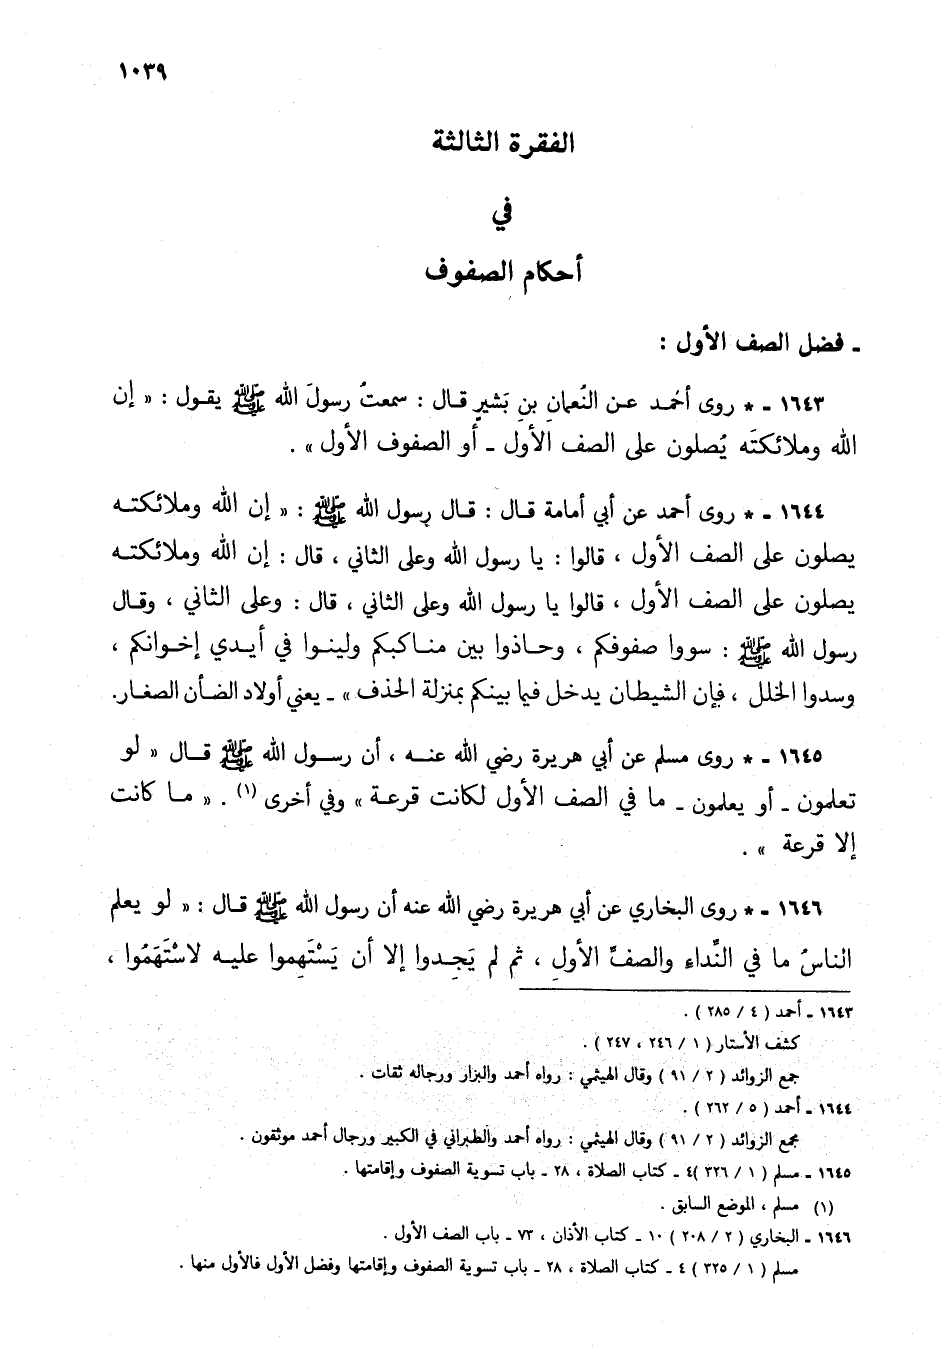 ١٠٣٩
الفقرة الثالثة
في
أحكام الصفوف
ـ فضل الصف الأول :
١٦٤٣ ـ * روى أحمد عن النُعمانِ بنِ بَشيرٍ قال : سمعتُ رسولَ الله ﷺ يقول : « إن
الله وملائكتَه يُصلون على الصف الأول ـ أو الصفوف الأول » .
١٦٤٤ ـ * روى أحمد عن أبي أمامة قال : قال رسول الله ﷺ : « إن الله وملائكته
يصلون على الصف الأول ، قالوا : يا رسول الله وعلى الثاني ، قال : إن الله وملائكته
يصلون على الصف الأول ، قالوا يا رسول الله وعلى الثاني ، قال : وعلى الثاني ، وقال
رسول الله ﷺ : سووا صفوفكم ، وحاذوا بين مناكبكم ولينوا في أيدي إخوانكم ،
وسدوا الخلل ، فإن الشيطان يدخل فيما بينكم بمنزلة الحذف » ـ يعني أولاد الضأن الصغار.
١٦٤٥ ـ * روى مسلم عن أبي هريرة رضي الله عنه ، أن رسول الله ﷺ قال « لو
تعلمون ـ أو يعلمون ـ ما في الصف الأول لكانت قرعة » وفي أخرى (١) . « ما كانت
إلا قرعة » .
١٦٤٦ ـ * روى البخاري عن أبي هريرة رضي الله عنه أن رسول الله ﷺ قال : « لو يعلم
الناسُ ما في النِّداء والصفِّ الأولِ ، ثم لم يَجِدوا إلا أن يَسْتَهِموا عليه لاسْتَهَمُوا ،
١٦٤٣ ـ أحمد ( ٤ / ٢٨٥ ) .
كشف الأستار ( ١ / ٢٤٦ ، ٢٤٧ ) .
جمع الزوائد ( ٢ / ٩١ ) وقال الهيثمي : رواه أحمد والبزار ورجاله ثقات .
١٦٤٤ ـ أحمد ( ٥ / ٢٦٢ ) .
مجمع الزوائد ( ٢ / ٩١ ) وقال الهيثمي : رواه أحمد والطبراني في الكبير ورجال أحمد موثقون .
١٦٤٥ ـ مسلم ( ١ / ٣٢٦ )٤ ـ كتاب الصلاة ، ٢٨ ـ باب تسوية الصفوف وإقامتها .
(١) مسلم ، الموضع السابق .
١٦٤٦ ـ البخاري ( ٢ / ٢٠٨ ) ١٠ ـ كتاب الأذان ، ٧٣ ـ باب الصف الأول .
مسلم ( ١ / ٣٢٥ ) ٤ ـ كتاب الصلاة ، ٢٨ ـ باب تسوية الصفوف وإقامتها وفضل الأول فالأول منها .